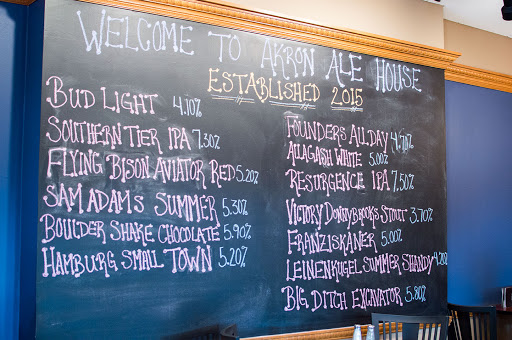 WELCOME TO AKRON ALE HOUSE
ESTABLISHED 2015
BUD LIGHT 4.10%
SOUTHERN TIER IPA 7.30%
FLYING BISON AVIATOR RED 5.20%
SAM ADAMS SUMMER 5.30%
BOULDER SHAKE CHOCOLATE 5.90%
HAMBURG SMALL TOWN 5.20%
FOUNDERS ALL DAY 4.70%
ALLAGASH WHITE 5.00%
RESURGENCE IPA 7.50%
VICTORY DONNYBROOKS STOUT 3.70%
FRANZISKANER 5.00%
LEINENKUGEL SUMMER SHANDY 4.20%
BIG DITCH EXCAVATOR 5.80%